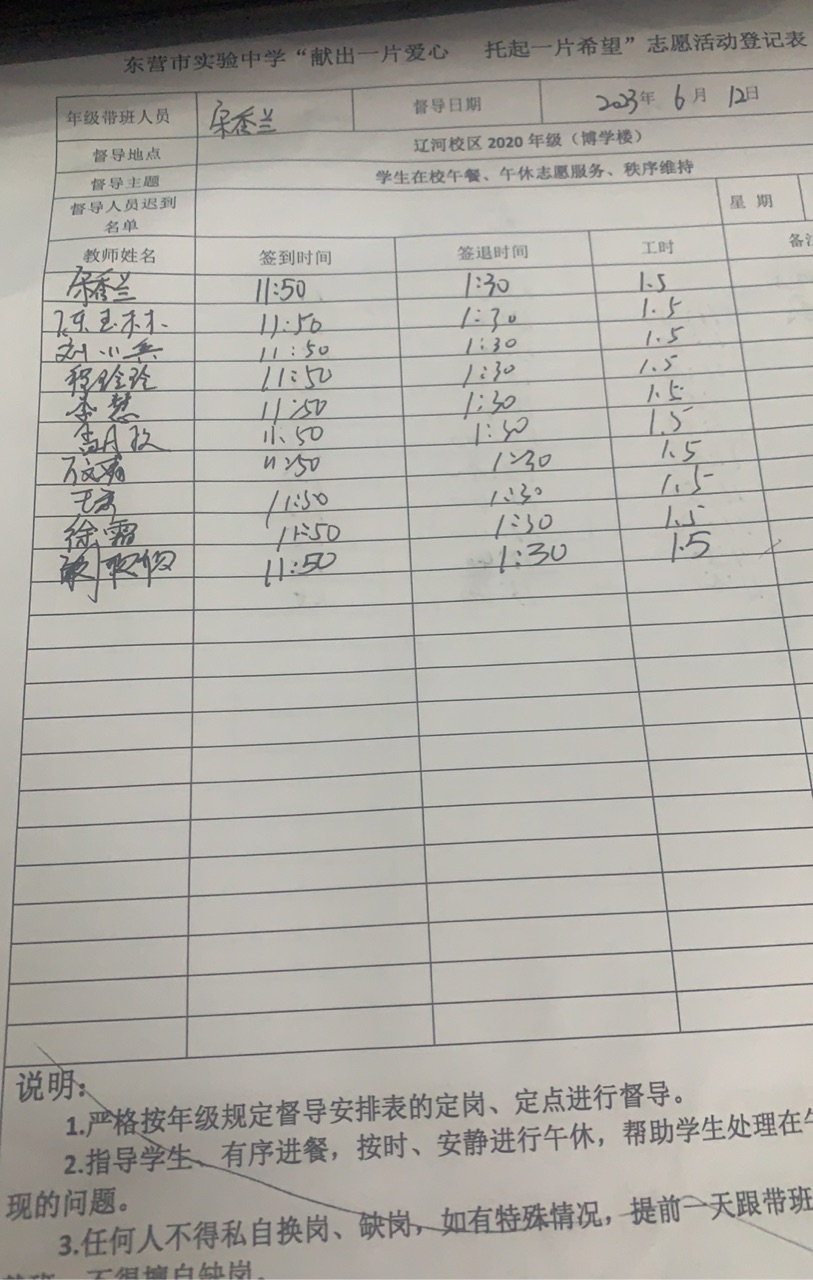 东营市实验中学“献出一片爱心 托起一片希望”志愿活动登记表
年级带班人员 宋香兰 督导日期 2023年 6月 12日
督导地点 辽河校区 2020 年级（博学楼）
督导主题 学生在校午餐、午休志愿服务、秩序维持
督导人员迟到名单 星 期
教师姓名 签到时间 签退时间 工时
宋香兰 11:50 1:30 1.5
陈玉林 11:50 1:30 1.5
刘小兵 11:50 1:30 1.5
程玲玲 11:50 1:30 1.5
李慧 11:50 1:30 1.5
11:50 1:30 1.5
11:50 1:30 1.5
11:50 1:30 1.5
徐霜 11:50 1:30 1.5
11:50 1:30 1.5
说明：
1.严格按年级规定督导安排表的定岗、定点进行督导。
2.指导学生、有序进餐，按时、安静进行午休，帮助学生处理在午
现的问题。
3.任何人不得私自换岗、缺岗，如有特殊情况，提前一天跟带班
不得擅自缺岗。